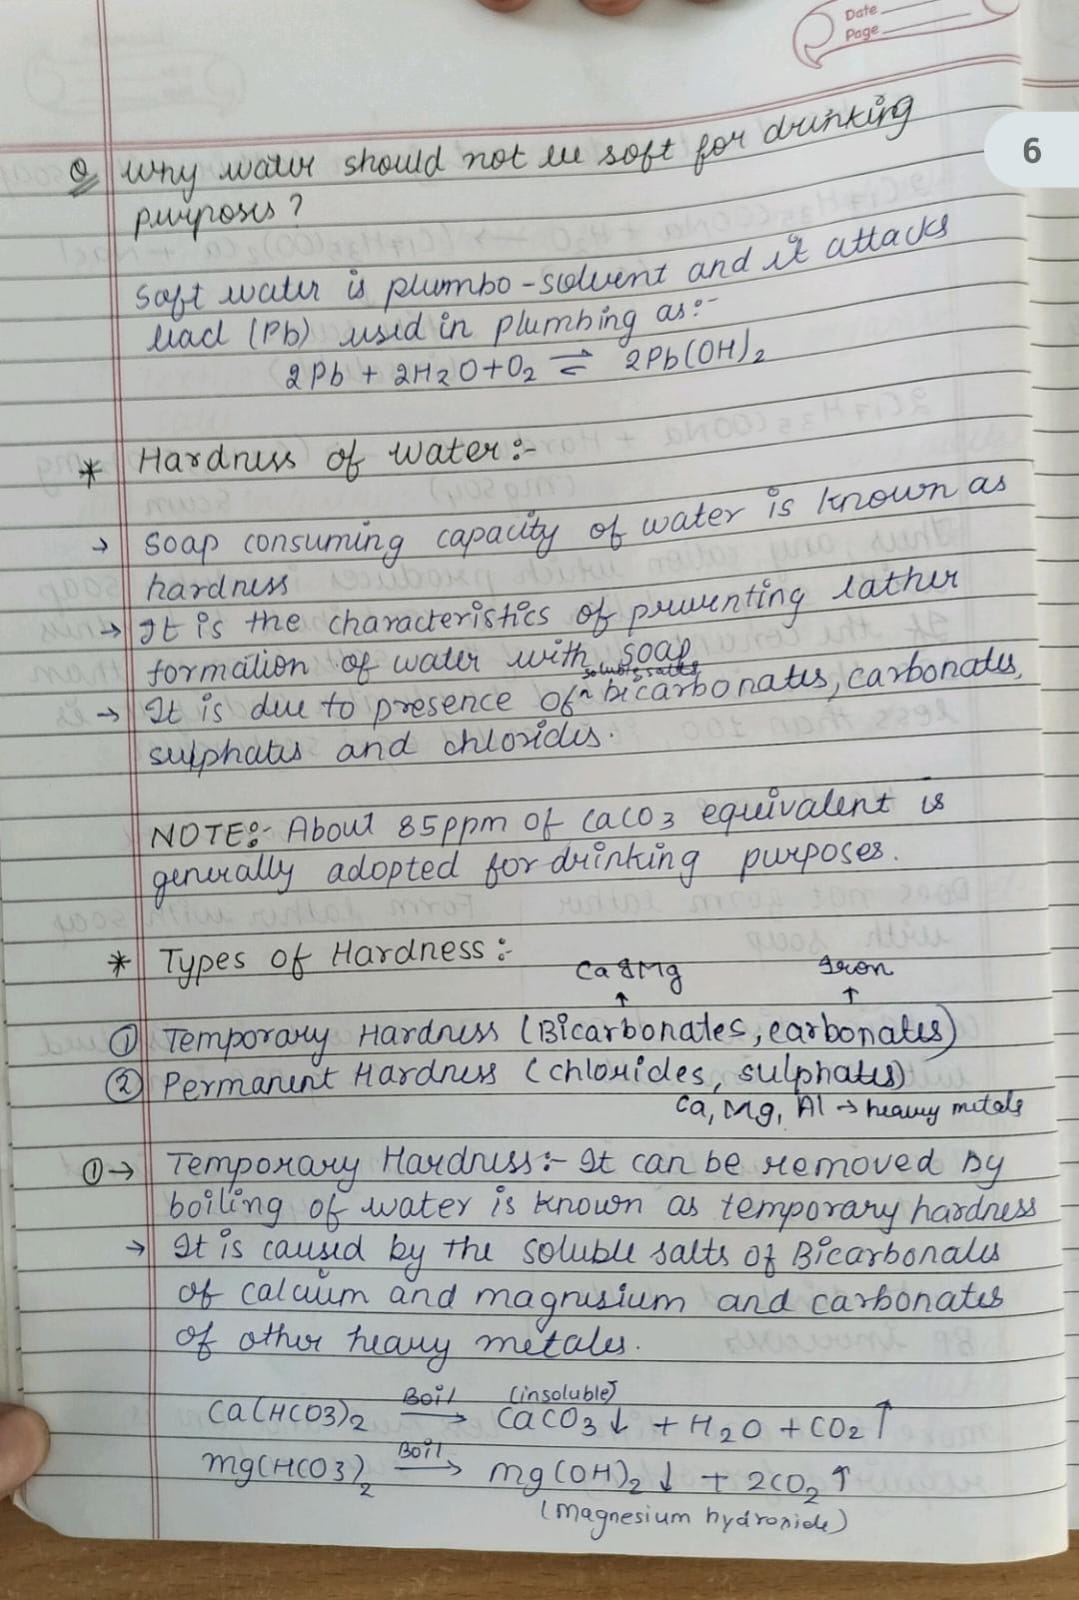 Date
Page
6
Q Why water should not be soft for drinking
purposes?
Soft water is plumbo-solvent and it attacks
lead (Pb) used in plumbing as:-
2Pb + 2H2O+O2 ⇌ 2Pb(OH)2
* Hardness of water:-
→ Soap consuming capacity of water is known as
hardness
→ It is the characteristics of preventing lather
formation of water with soap
soluble salts
→ It is due to presence of ^ bicarbonates, carbonates,
sulphates and chlorides.
NOTE:- About 85ppm of CaCO3 equivalent is
generally adopted for drinking purposes.
* Types of Hardness:-
Ca & Mg Iron
↑ ↑
① Temporary Hardness (Bicarbonates, carbonates)
② Permanent Hardness (chlorides, sulphates)
Ca, Mg, Al → heavy metals
①→ Temporary Hardness:- It can be removed by
boiling of water is known as temporary hardness
→ It is caused by the soluble salts of Bicarbonates
of calcium and magnesium and carbonates
of other heavy metales.
Boil (insoluble)
Ca(HCO3)2 → CaCO3↓ + H2O + CO2↑
Boil
Mg(HCO3)2 → Mg(OH)2↓ + 2CO2↑
(Magnesium hydroxide)